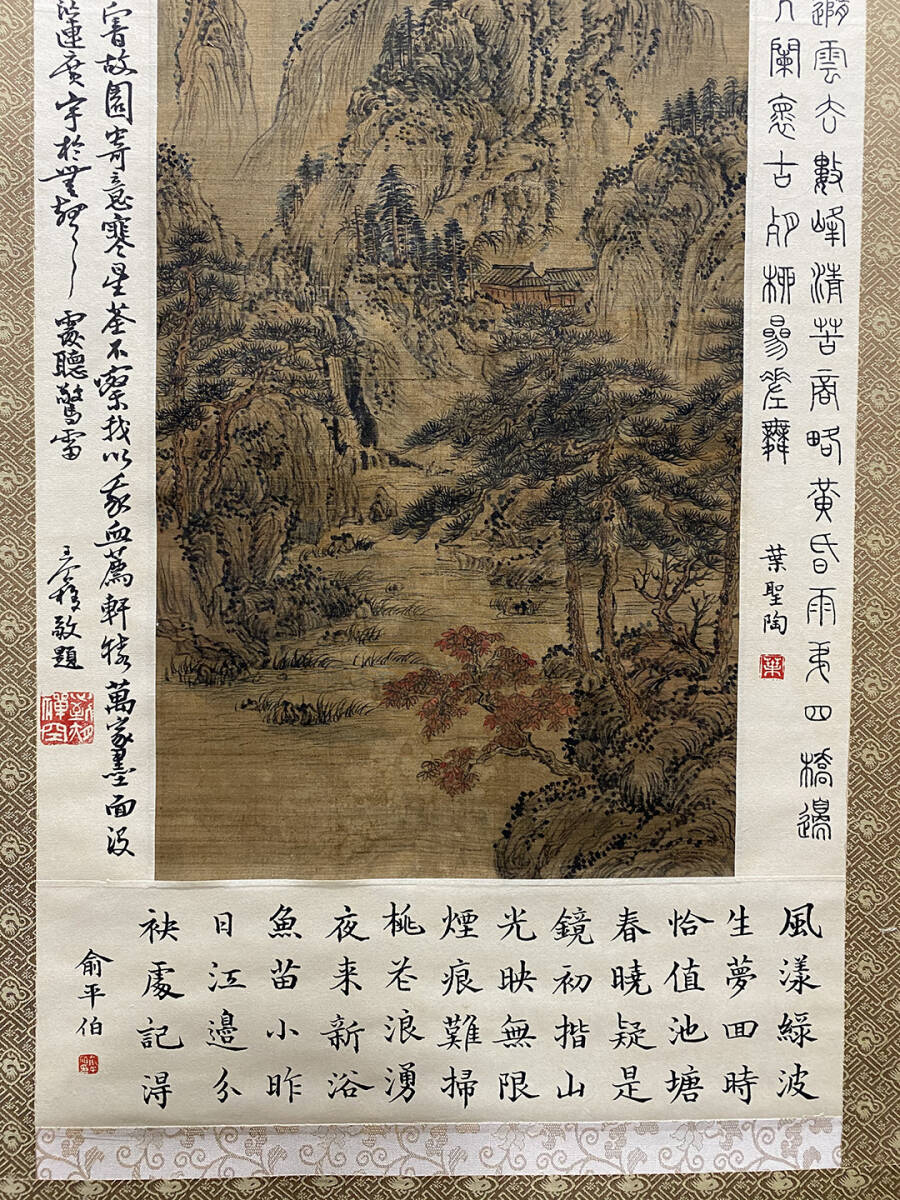 隨雲去數峰清苦商略黃昏雨弟四橋邊
闌懷古殘柳參差舞
葉聖陶
葉
闇故園寄意寒星荃不察我以我血薦軒轅萬家墨面沒
茫連廣宇於無聲處聽驚雷
敬題
風漾綠波
生夢囬時
恰值池塘
春曉疑是
鏡初揩山
光映無限
煙痕難掃
桃花浪湧
夜来新浴
魚苗小昨
日江邊分
袂處記得
俞平伯